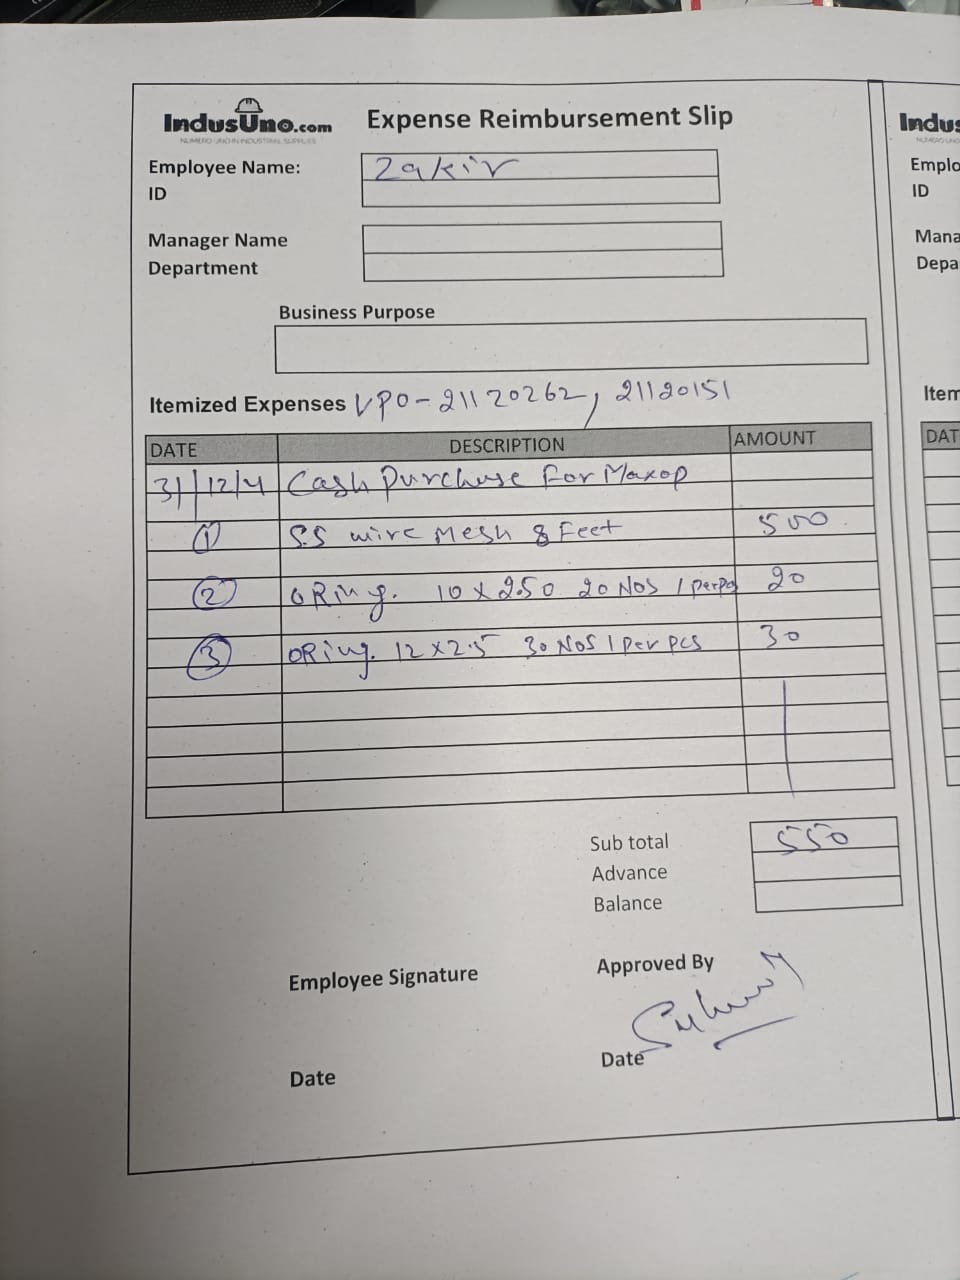 IndusUno.com
NUMERO UNO IN INDUSTRIAL SUPPLIES
Expense Reimbursement Slip
Employee Name: Zakir
ID
Manager Name
Department
Business Purpose
Itemized Expenses VPO-21120262, 21120151
DATE DESCRIPTION AMOUNT
31/12/4 Cash Purchase For Maxop
1 S.S wire Mesh 8 Feet 500
2 ORing. 10 x 2.50 20 NOS 1 perpcs 20
3 ORing. 12 x 2.5 30 NOS 1 Per pcs 30
Sub total 550
Advance
Balance
Employee Signature
Approved By
Date
Date
Indus
Emplo
ID
Mana
Depa
Item
DAT